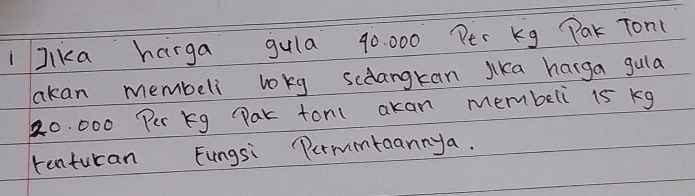 1 Jika harga gula 40.000 Per kg Pak Toni
akan membeli 10 kg sedangkan Jika harga gula
20.000 Per kg Pak toni akan membeli 15 kg
tentukan Fungsi Permintaannya.